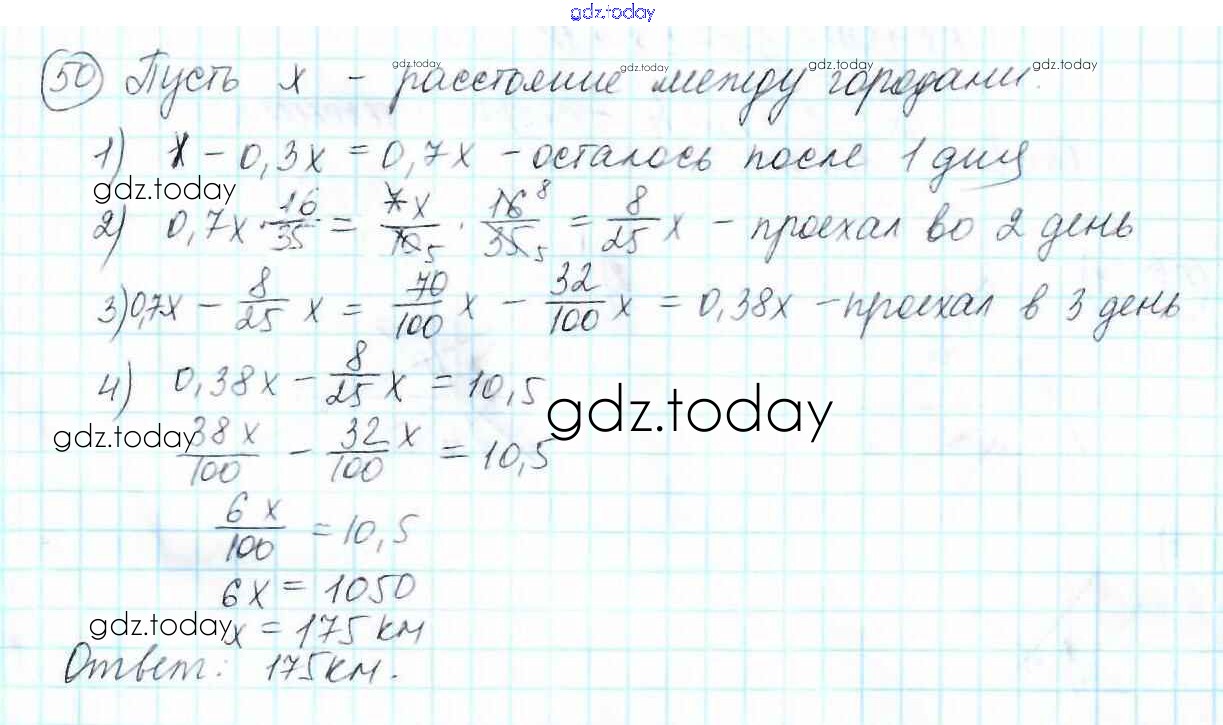 gdz.today
50 Пусть x - расстояние между городами.
gdz.today gdz.today gdz.today gdz.today
1) x - 0,3x = 0,7x - осталось после 1 дня
gdz.today
2) 0,7x · 16/35 = 7x/10 5 · 16 8/35 5 = 8/25 x - проехал во 2 день
3) 0,7x - 8/25 x = 70/100 x - 32/100 x = 0,38x - проехал в 3 день
4) 0,38x - 8/25 x = 10,5
gdz.today
gdz.today
38x/100 - 32/100 x = 10,5
6x/100 = 10,5
6x = 1050
gdz.today
x = 175 км
Ответ: 175 км.